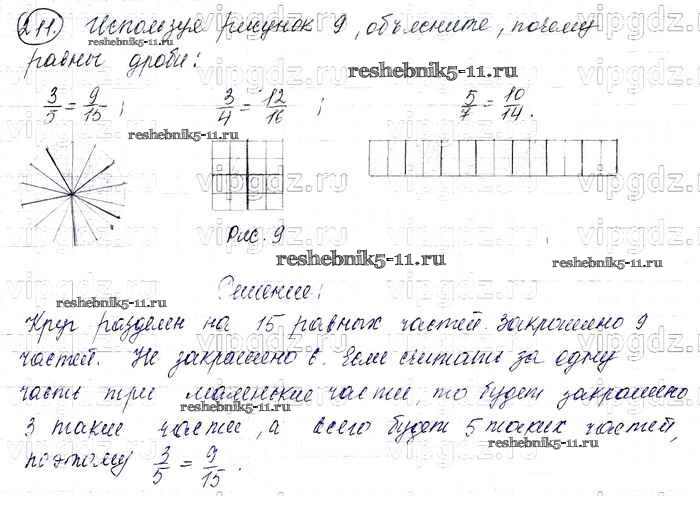 211. Используя рисунок 9, объясните, почему
reshebnik5-11.ru
vipgdz.ru
равны дроби:
reshebnik5-11.ru
3/5 = 9/15; 3/4 = 12/16; 5/7 = 10/14.
reshebnik5-11.ru
vipgdz.ru
Рис. 9
reshebnik5-11.ru
reshebnik5-11.ru
Решение:
reshebnik5-11.ru
Круг разделен на 15 равных частей. Закрашено 9
частей. Не закрашено 6. Если считать за одну
часть три маленькие части, то будет закрашено
reshebnik5-11.ru
3 такие части, а всего будет 5 таких частей,
reshebnik5-11.ru
поэтому 3/5 = 9/15.
vipgdz.ru